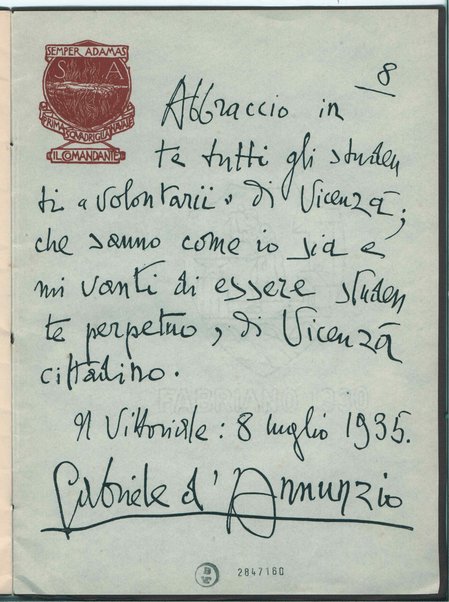 SEMPER ADAMAS
S A
PRIMA SQUADRIGLIA NAVALE
IL COMANDANTE
8
Abbraccio in
te tutti gli studen
ti "volontarii" di Vicenza;
che sanno come io sia e
mi vanti di essere studen
te perpetuo, di Vicenza
cittadino.
Il Vittoriale: 8 luglio 1935.
Gabriele d'Annunzio
2847160